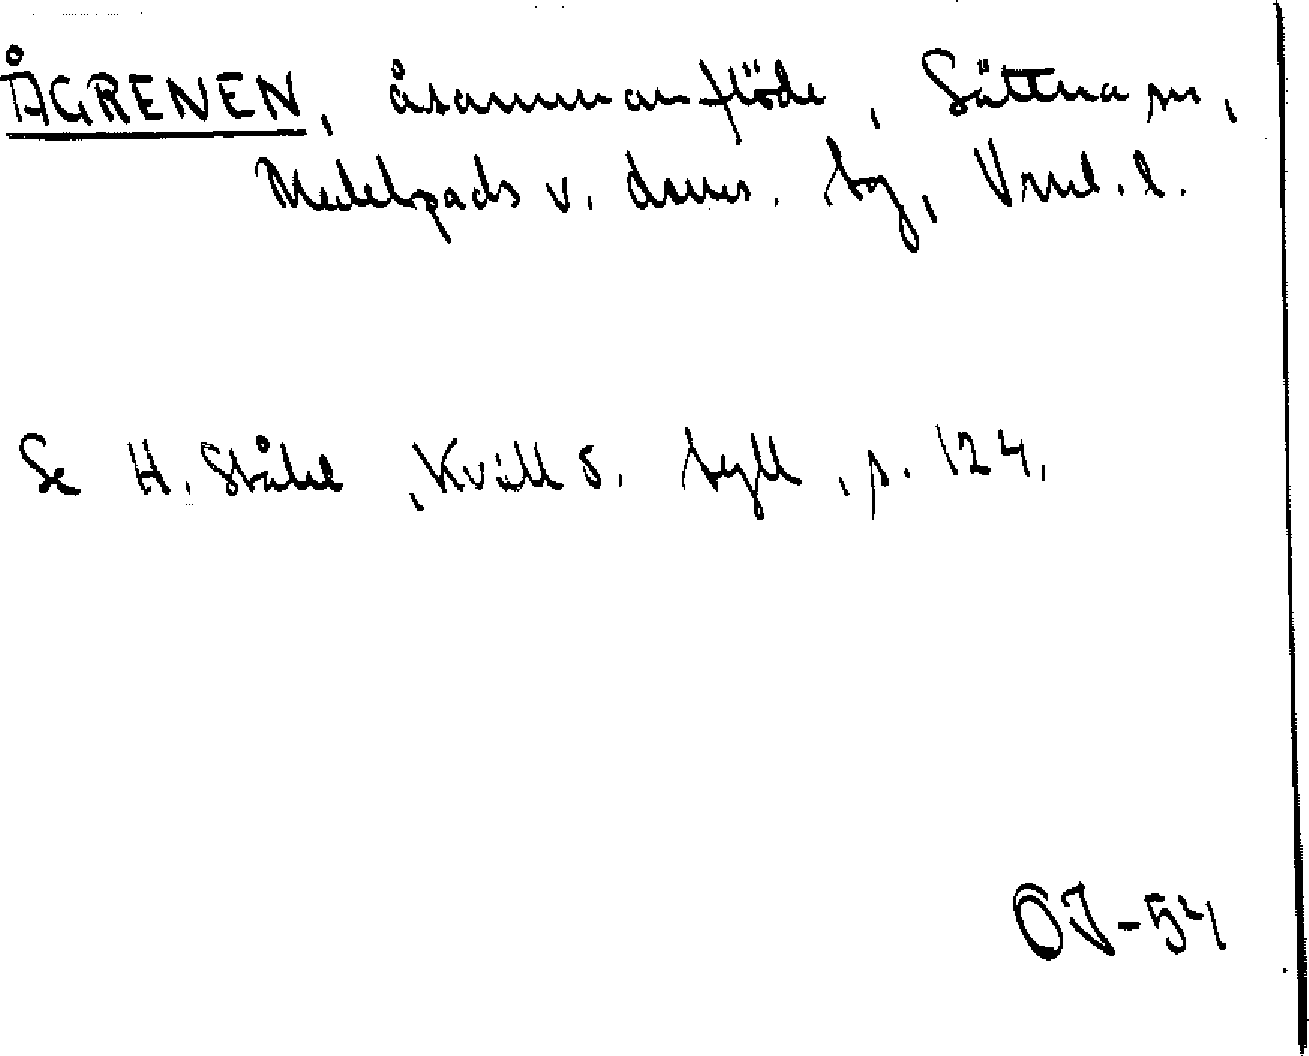 ÅGRENEN, åsammanflöde, Sättna sn,
Medelpads v. doms. tg, Vnrl. l.
Se H. Ståhl, Kvill o. tyll, p. 124.
OJ-54